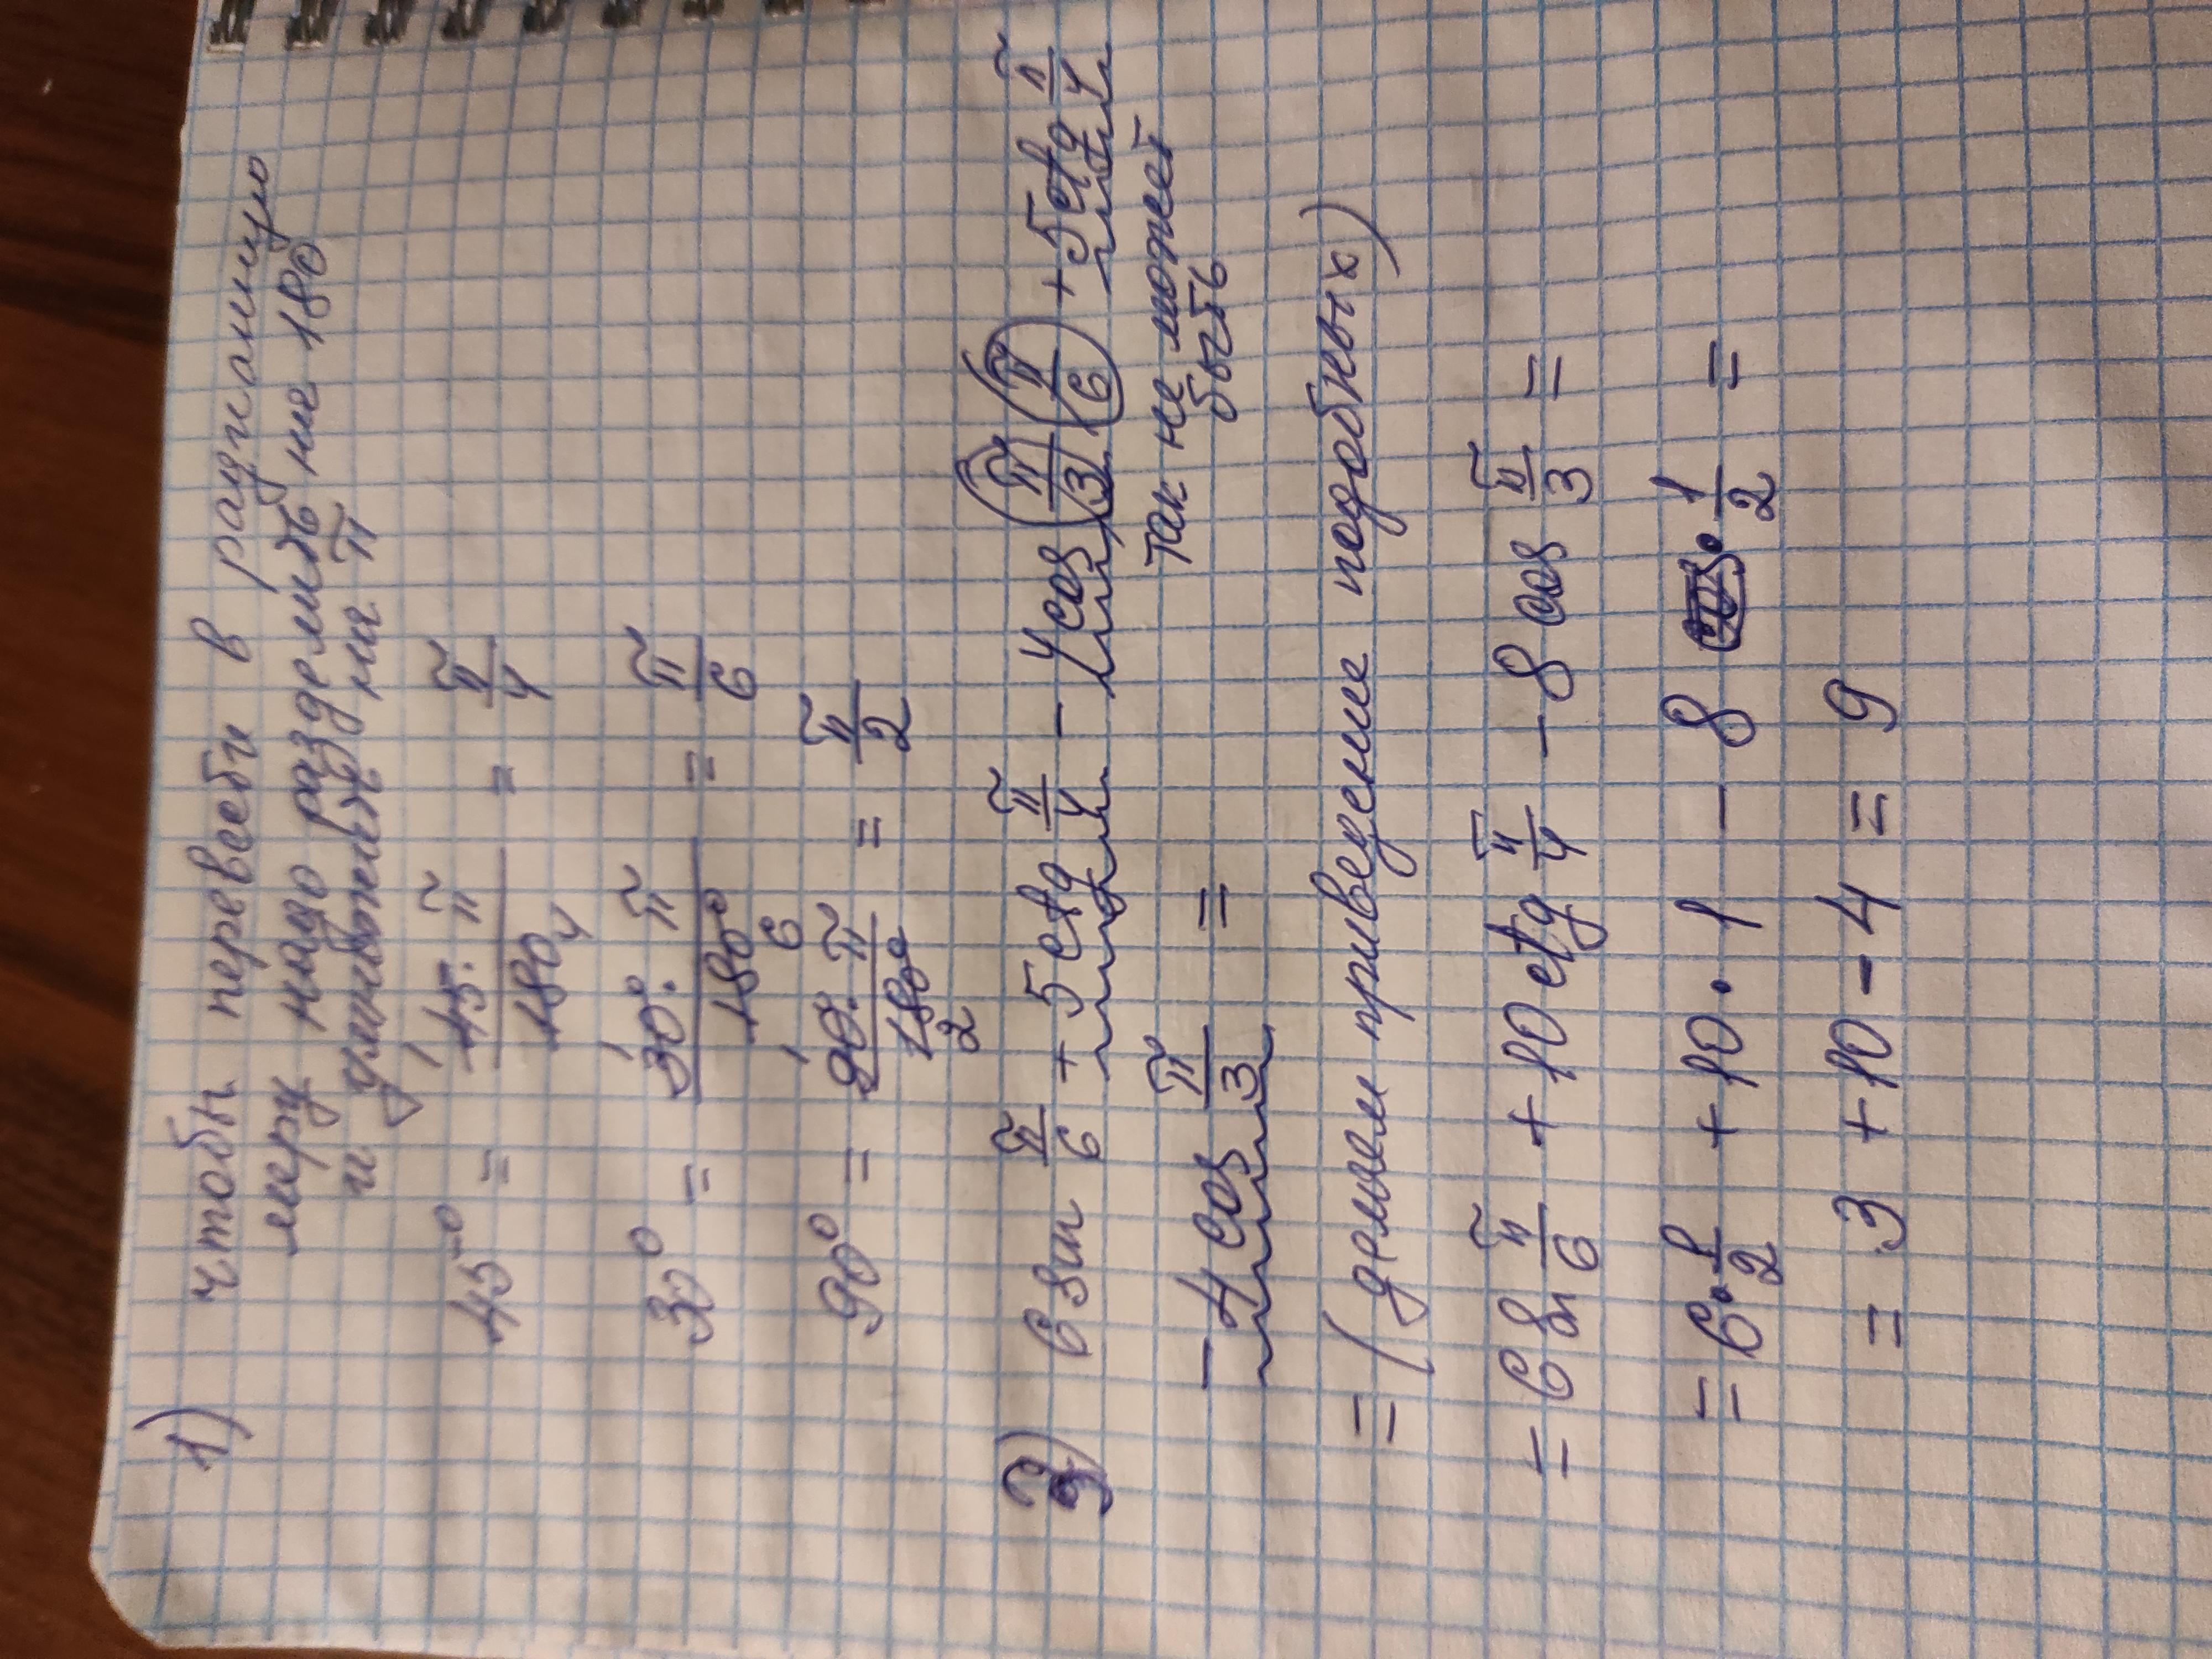 1) чтобы перевести в радианную
меру надо разделить на 180
и умножить на π
45° = 45 · π / 180 = π/4
30° = 30° · π / 180° = π/6
90° = 90° · π / 180° = π/2
2) 6 sin π/6 + 5 ctg π/4 - 4 cos π/3 π/6 + 5 ctg π/4
так не может
быть
- 4 cos π/3 =
= (делаем приведение подобных)
= 6 sin π/6 + 10 ctg π/4 - 8 cos π/3 =
= 6 · 1/2 + 10 · 1 - 8 · 1/2 =
= 3 + 10 - 4 = 9